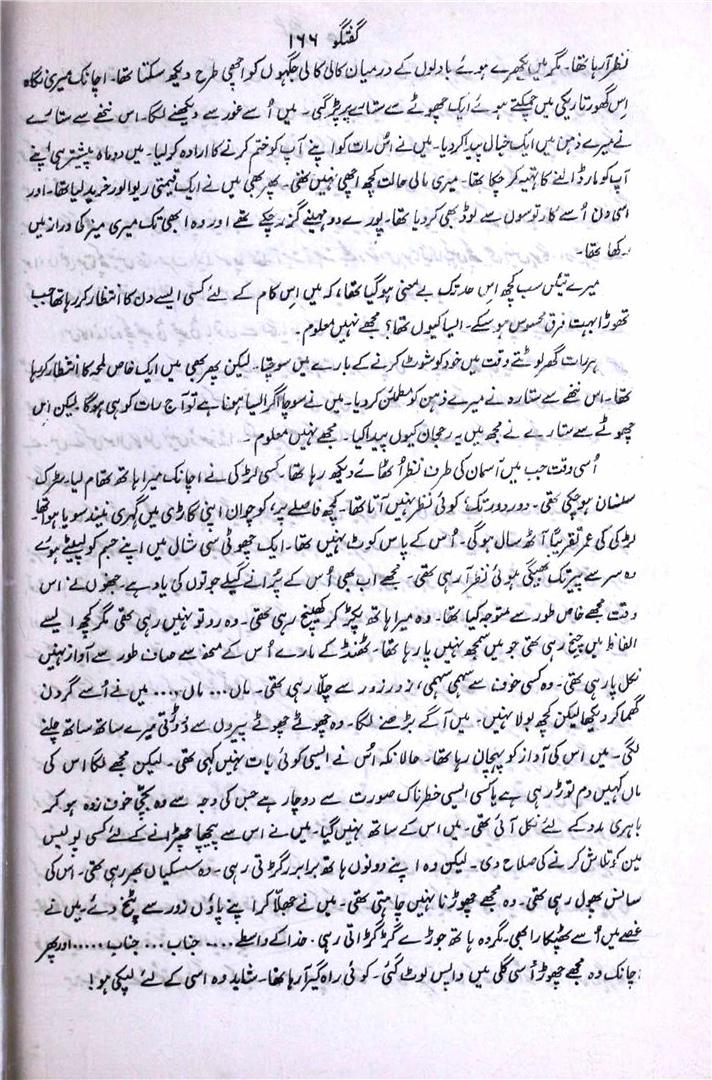 گفتگو ۱۶۶
نظر آ رہا تھا۔ مگر میں بکھرے ہوئے بادلوں کے درمیان کالی کالی جگہوں کو اچھی طرح دیکھ سکتا تھا۔ اچانک میری نگاہ
اس گھور تاریکی میں چمکتے ہوئے ایک چھوٹے سے ستارے پر پڑ گئی۔ میں اُسے غور سے دیکھنے لگا۔ اس ننھے سے ستارے
نے میرے ذہن میں ایک خیال پیدا کر دیا۔ میں نے اُس رات کو اپنے آپ کو ختم کرنے کا ارادہ کر لیا۔ میں دو ماہ پیشتر ہی اپنے
آپ کو مار ڈالنے کا تہیہ کر چکا تھا۔ میری مالی حالت کچھ اچھی نہیں تھی۔ پھر بھی میں نے ایک قیمتی ریوالور خرید لیا تھا۔ اور
اسی دن اُسے کارتوسوں سے لوڈ بھی کر دیا تھا۔ پورے دو مہینے گزر چکے تھے اور وہ ابھی تک میری میز کی دراز میں
رکھا تھا۔
میرے تئیں سب کچھ اس حد تک بے معنی ہو گیا تھا، کہ میں اِس کام کے لئے کسی ایسے دن کا انتظار کر رہا تھا جب
تھوڑا بہت فرق محسوس ہو سکے۔ ایسا کیوں تھا؟ مجھے نہیں معلوم۔
ہر رات گھر لوٹتے وقت میں خود کو شوٹ کرنے کے بارے میں سوچتا۔ لیکن پھر بھی میں ایک خاص لمحہ کا انتظار کر رہا
تھا۔ اس ننھے سے ستارہ نے میرے ذہن کو مطمئن کر دیا۔ میں نے سوچا اگر ایسا ہونا ہے تو آج رات کو ہی ہوگا لیکن اس
چھوٹے سے ستارے نے مجھ میں یہ رجحان کیوں پیدا کیا۔ مجھے نہیں معلوم۔
اُسی وقت جب میں آسمان کی طرف نظر اُٹھائے دیکھ رہا تھا کسی لڑکی نے اچانک میرا ہاتھ تھام لیا۔ سڑک
سنسان ہو چکی تھی۔ دور دور تک کوئی نظر نہیں آتا تھا۔ کچھ فاصلے پر، کوچوان اپنی گاڑی میں گہری نیند سویا ہوا تھا
لڑکی کی عمر تقریباً آٹھ سال ہوگی۔ اُس کے پاس کوٹ نہیں تھا۔ ایک چھوٹی سی شال میں اپنے جسم کو لپیٹے ہوئے
وہ سر سے پیر تک بھیگی ہوئی نظر آ رہی تھی۔ مجھے اب بھی اُس کے پُرانے گیلے جوتوں کی یاد ہے۔ جنھوں نے اس
وقت مجھے خاص طور سے متوجہ کیا تھا۔ وہ میرا ہاتھ پکڑ کر کھینچ رہی تھی۔ وہ رو تو نہیں رہی تھی مگر کچھ ایسے
الفاظ میں چیخ رہی تھی جو میں سمجھ نہیں پا رہا تھا۔ ٹھنڈ کے مارے اُس کے منھ سے صاف طور سے آواز نہیں
نکل پا رہی تھی۔ وہ کسی خوف سے سہمی سہمی، زور زور سے چلّا رہی تھی۔ ماں... ماں.... میں نے اُسے گردن
گھما کر دیکھا لیکن کچھ بولا نہیں۔ میں آگے بڑھنے لگا۔ وہ چھوٹے چھوٹے پیروں سے دوڑتی میرے ساتھ ساتھ چلنے
لگی۔ میں اس کی آواز کو پہچان رہا تھا۔ حالانکہ اُس نے ایسی کوئی بات نہیں کہی تھی۔ لیکن مجھے لگا اس کی
ماں کہیں دم توڑ رہی ہے یا کسی ایسی خطرناک صورت سے دو چار ہے جس کی وجہ سے وہ بچّی خوف زدہ ہو کر
باہری مدد کے لئے نکل آئی تھی۔ میں اس کے ساتھ نہیں گیا۔ میں نے اس سے پیچھا چھڑانے کے لئے کسی پولیس
مین کو تلاش کرنے کی صلاح دی۔ لیکن وہ اپنے دونوں ہاتھ برابر رگڑتی رہی۔ وہ سسکیاں بھر رہی تھی۔ اس کی
سانس پھول رہی تھی۔ وہ مجھے چھوڑنا نہیں چاہتی تھی۔ میں نے جھلّا کر اپنے پاؤں زور سے پٹخ دئے۔ میں نے
غصے میں اُسے پھٹکارا بھی۔ مگر وہ ہاتھ جوڑے گڑگڑاتی رہی۔ خدا کے واسطے.... جناب... جناب..... اور پھر
اچانک وہ مجھے چھوڑ اُسی گلی میں واپس لوٹ گئی۔ کوئی راہ گیر آ رہا تھا۔ شاید وہ اسی کے لئے لپکی ہو!